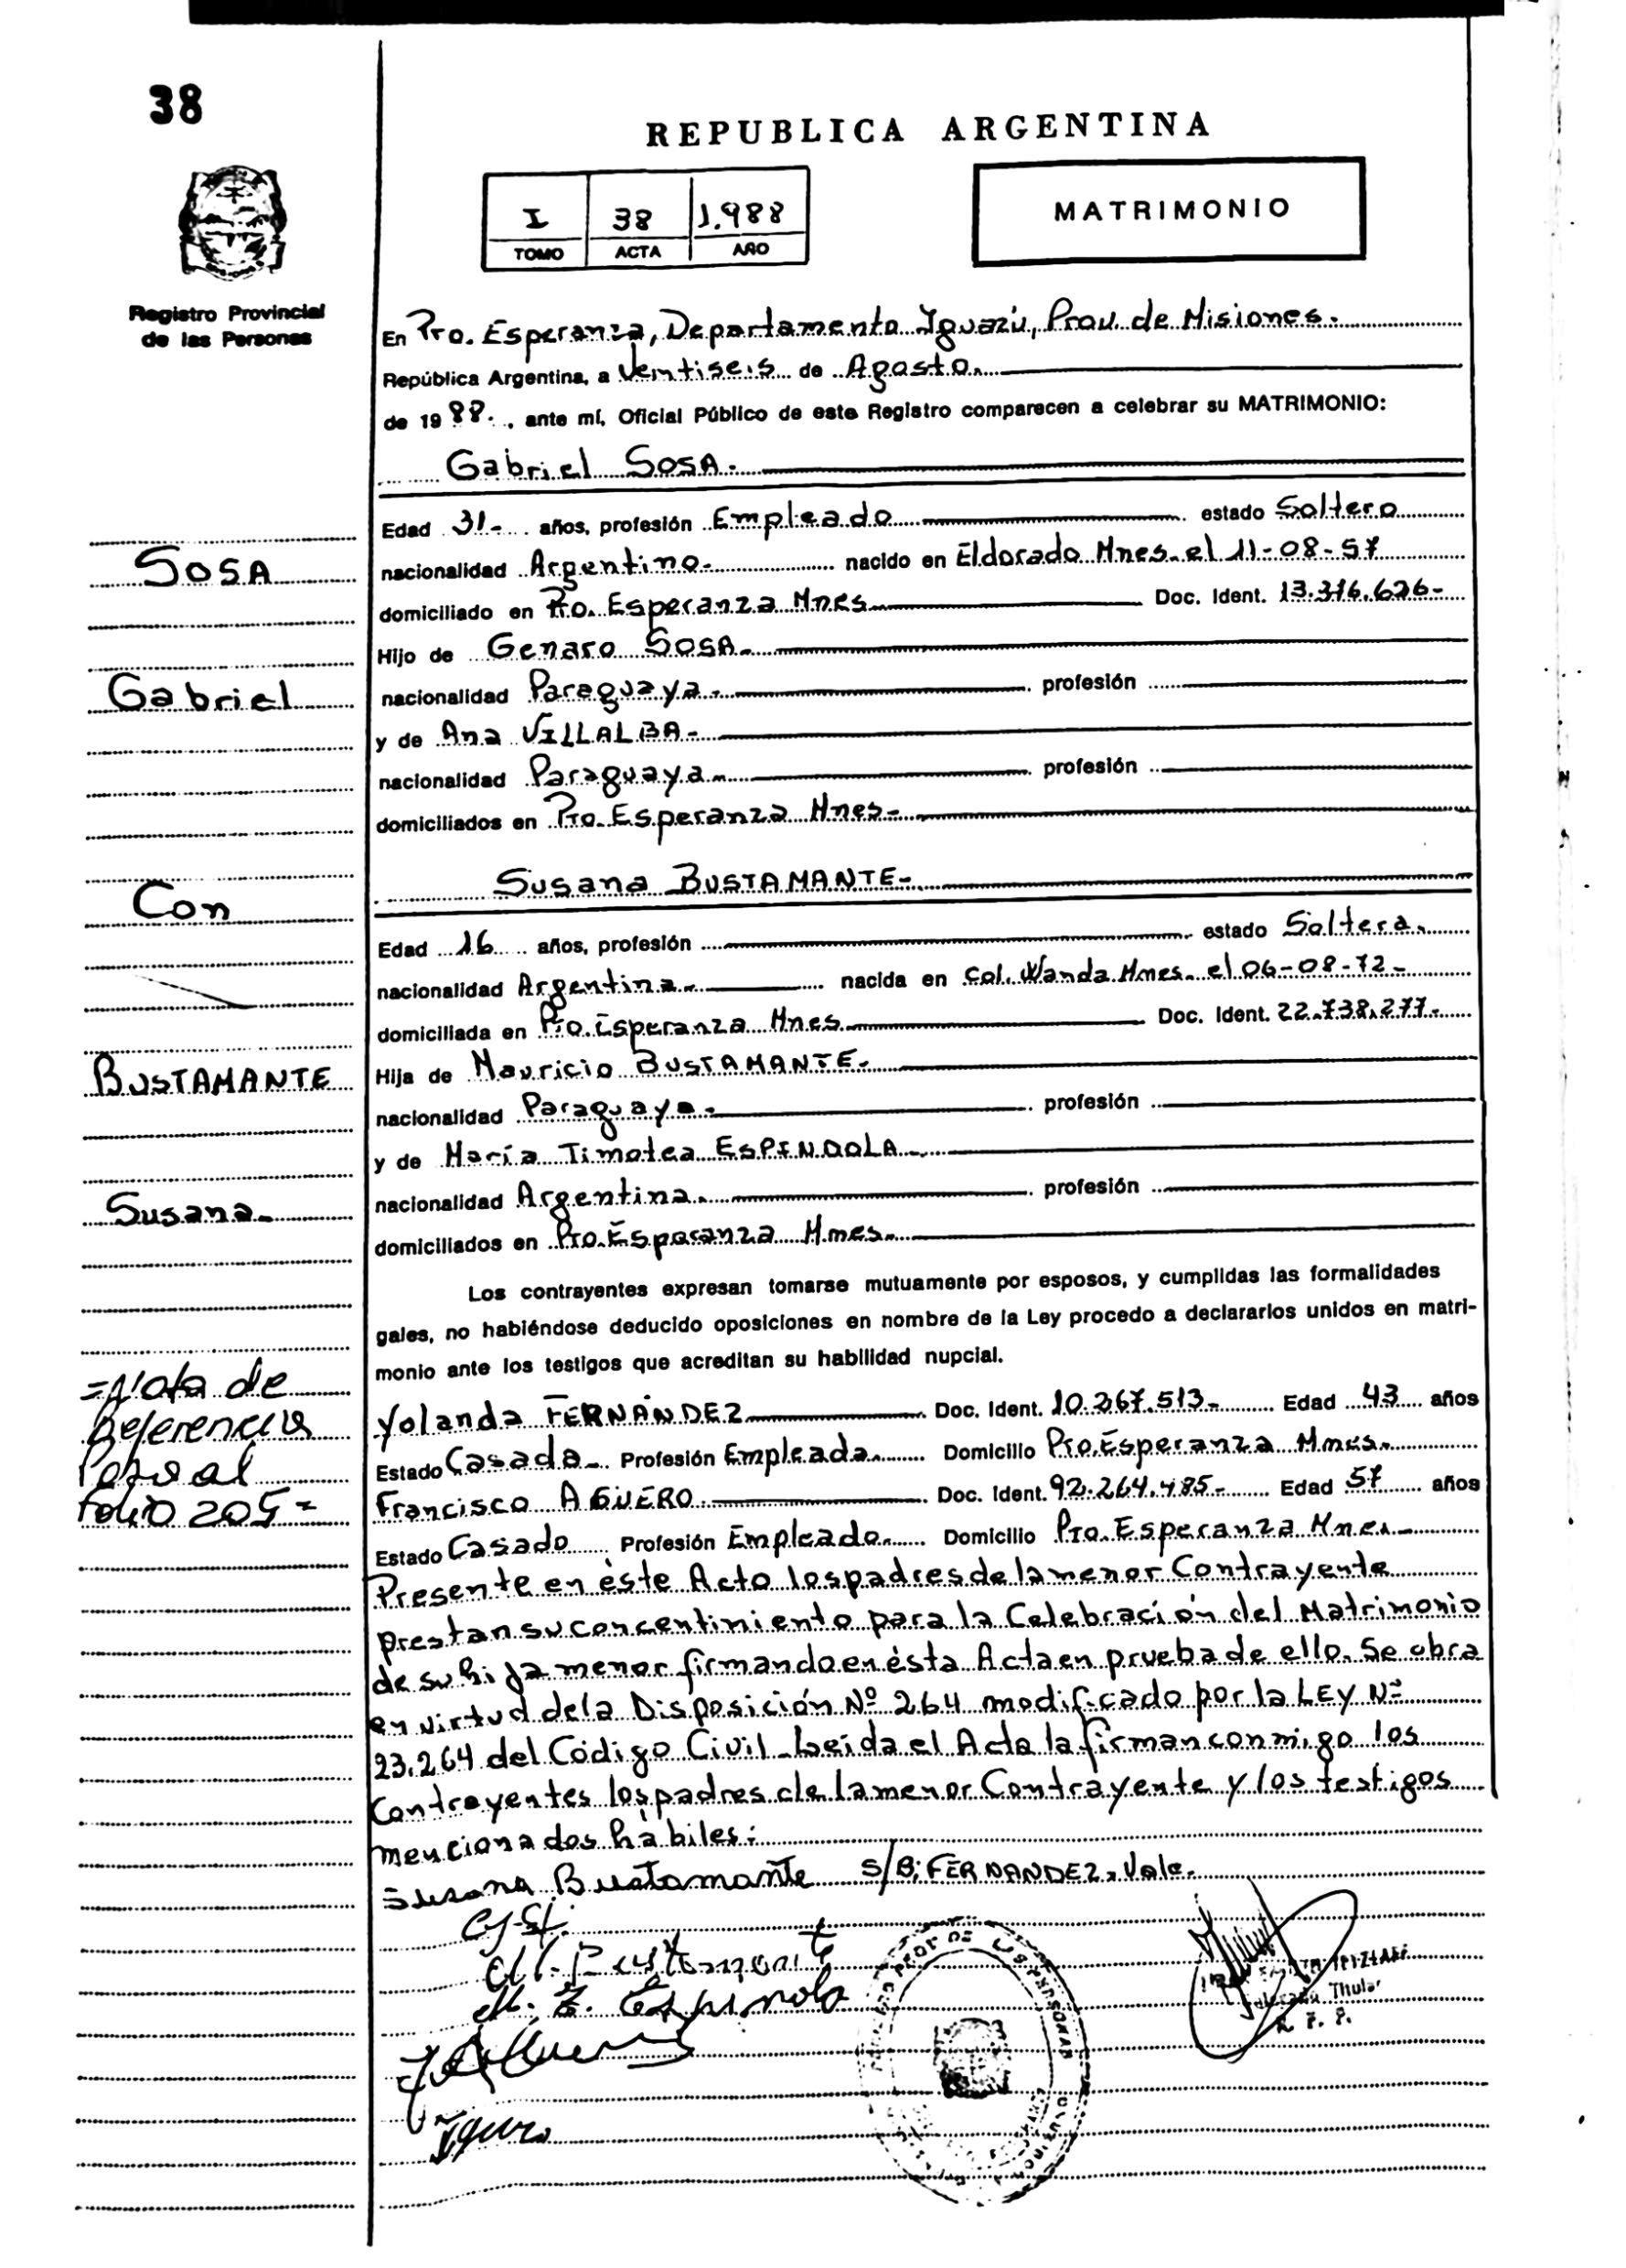 38
REPUBLICA ARGENTINA
I 38 1.988
TOMO ACTA AÑO
MATRIMONIO
Registro Provincial
de las Personas
En Pto. Esperanza, Departamento Yguazú, Prov. de Misiones.
República Argentina, a Veintiseis de Agosto.
de 1988., ante mí, Oficial Público de este Registro comparecen a celebrar su MATRIMONIO:
Gabriel SOSA.
Edad 31- años, profesión Empleado estado Soltero
nacionalidad Argentino. nacido en Eldorado Mnes. el 11-08-57
domiciliado en Pto. Esperanza Mnes Doc. Ident. 13.376.626-
Hijo de Genaro SOSA.
nacionalidad Paraguaya. profesión
y de Ana VILLALBA-
nacionalidad Paraguaya profesión
domiciliados en Pto. Esperanza Mnes-
Susana BUSTAMANTE-
Edad 16 años, profesión estado Soltera.
nacionalidad Argentina nacida en Col. Wanda Mnes. el 06-08-72-
domiciliada en Pto. Esperanza Mnes Doc. Ident. 22.738.277-
Hija de Mauricio BUSTAMANTE.
nacionalidad Paraguaya. profesión
y de María Timotea ESPINDOLA
nacionalidad Argentina. profesión
domiciliados en Pto. Esperanza Mnes.
Los contrayentes expresan tomarse mutuamente por esposos, y cumplidas las formalidades
gales, no habiéndose deducido oposiciones en nombre de la Ley procedo a declararlos unidos en matri-
monio ante los testigos que acreditan su habilidad nupcial.
Yolanda FERNANDEZ Doc. Ident. 10.267.513- Edad 43 años
Estado Casada- Profesión Empleada. Domicilio Pto. Esperanza Mnes.
Francisco AGUERO. Doc. Ident. 92.264.485- Edad 57 años
Estado Casado Profesión Empleado. Domicilio Pto. Esperanza Mnes
Presente en éste Acto los padres de la menor Contrayente
prestan su concentimiento para la Celebración del Matrimonio
de su hija menor firmando en ésta Acta en prueba de ello. Se obra
en virtud de la Disposición Nº 264 modificado por la LEY Nº
23.264 del Código Civil- Leida el Acta la firman conmigo los
Contrayentes los padres de la menor Contrayente y los testigos
mencionados hábiles:
Susana Bustamante S/B; FERNANDEZ, Vale.
M. Bustamante
M. T. Espinola
Titular
R. P. P.
SOSA
Gabriel
Con
BUSTAMANTE
Susana-
=Nota de
Referencia
Folio 205=